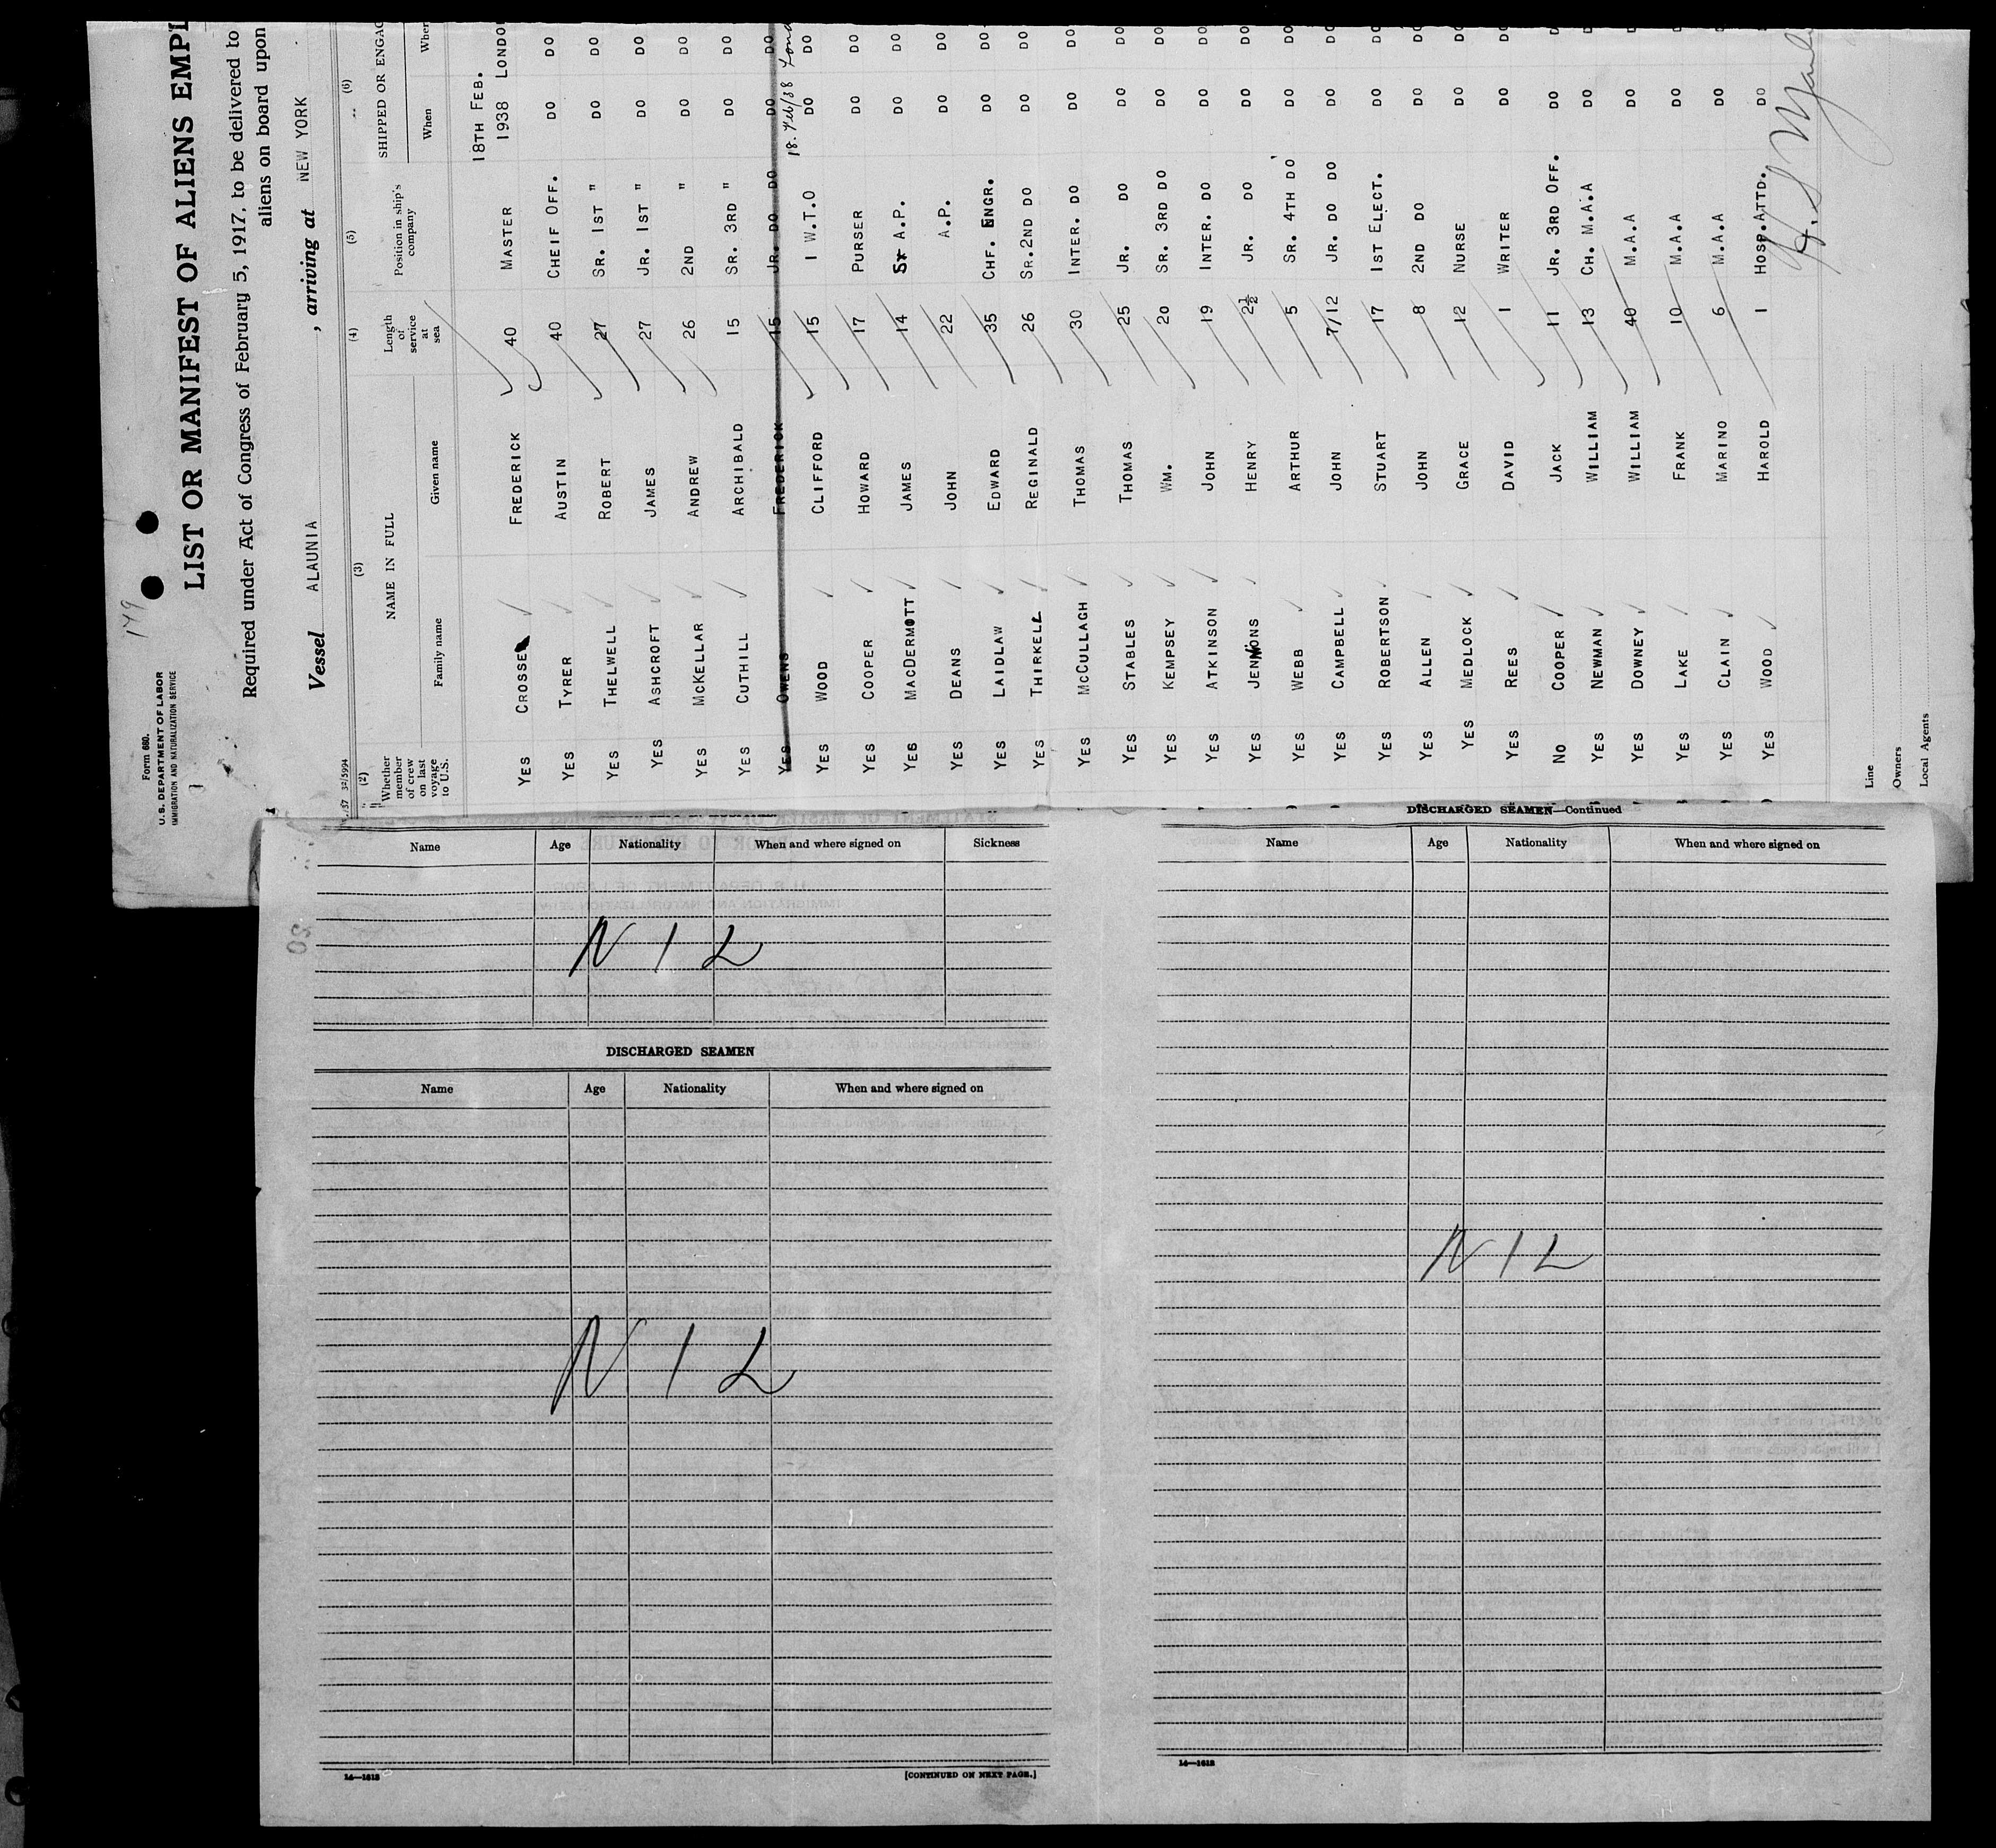 Form 680.
U.S. DEPARTMENT OF LABOR
IMMIGRATION AND NATURALIZATION SERVICE
149
LIST OR MANIFEST OF ALIENS EMPL
Required under Act of Congress of February 5, 1917, to be delivered to
aliens on board upon
Vessel ALAUNIA, arriving at NEW YORK
(2) (3) (4) (5) (6)
Whether member of crew on last voyage to U.S. NAME IN FULL Length of service at sea Position in ship's company SHIPPED OR ENGAG
Family name Given name When Wher
18TH FEB.
YES CROSSE FREDERICK 40 MASTER 1938 LONDO
YES TYRER AUSTIN 40 CHEIF OFF. DO DO
YES THELWELL ROBERT 27 SR. 1ST " DO DO
YES ASHCROFT JAMES 27 JR. 1ST " DO DO
YES MCKELLAR ANDREW 26 2ND " DO DO
YES CUTHILL ARCHIBALD 15 SR. 3RD " DO DO
YES OWENS FREDERICK 15 JR. DO DO DO DO
18. Feb/38 Lond
YES WOOD CLIFFORD 15 1 W.T.O DO DO
YES COOPER HOWARD 17 PURSER DO DO
YES MACDERMOTT JAMES 14 Sr A.P. DO DO
YES DEANS JOHN 22 A.P. DO DO
YES LAIDLAW EDWARD 35 CHF. ENGR. DO DO
YES THIRKELL REGINALD 26 SR.2ND DO DO DO
YES MCCULLAGH THOMAS 30 INTER. DO DO DO
YES STABLES THOMAS 25 JR. DO DO DO
YES KEMPSEY WM. 20 SR. 3RD DO DO DO
YES ATKINSON JOHN 19 INTER. DO DO DO
YES HENRY 2½ JR. DO DO DO
YES WEBB ARTHUR 5 SR. 4TH DO DO DO
YES CAMPBELL JOHN 7/12 JR. DO DO DO DO
YES ROBERTSON STUART 17 1ST ELECT. DO DO
YES ALLEN JOHN 8 2ND DO DO DO
YES MEDLOCK GRACE 12 NURSE DO DO
YES REES DAVID 1 WRITER DO DO
NO COOPER JACK 11 JR. 3RD OFF. DO D
YES NEWMAN WILLIAM 13 CH. M.A.A DO D
YES DOWNEY WILLIAM 40 M.A.A DO D
YES LAKE FRANK 10 M.A.A DO D
YES CLAIN MARINO 6 M.A.A DO D
YES WOOD HAROLD 1 HOSP.ATTD. DO
Line
Owners
Local Agents
Name Age Nationality When and where signed on Sickness
NIL
DISCHARGED SEAMEN
Name Age Nationality When and where signed on
NIL
14—1613
[CONTINUED ON NEXT PAGE.]
DISCHARGED SEAMEN—Continued
Name Age Nationality When and where signed on
NIL
14—1613